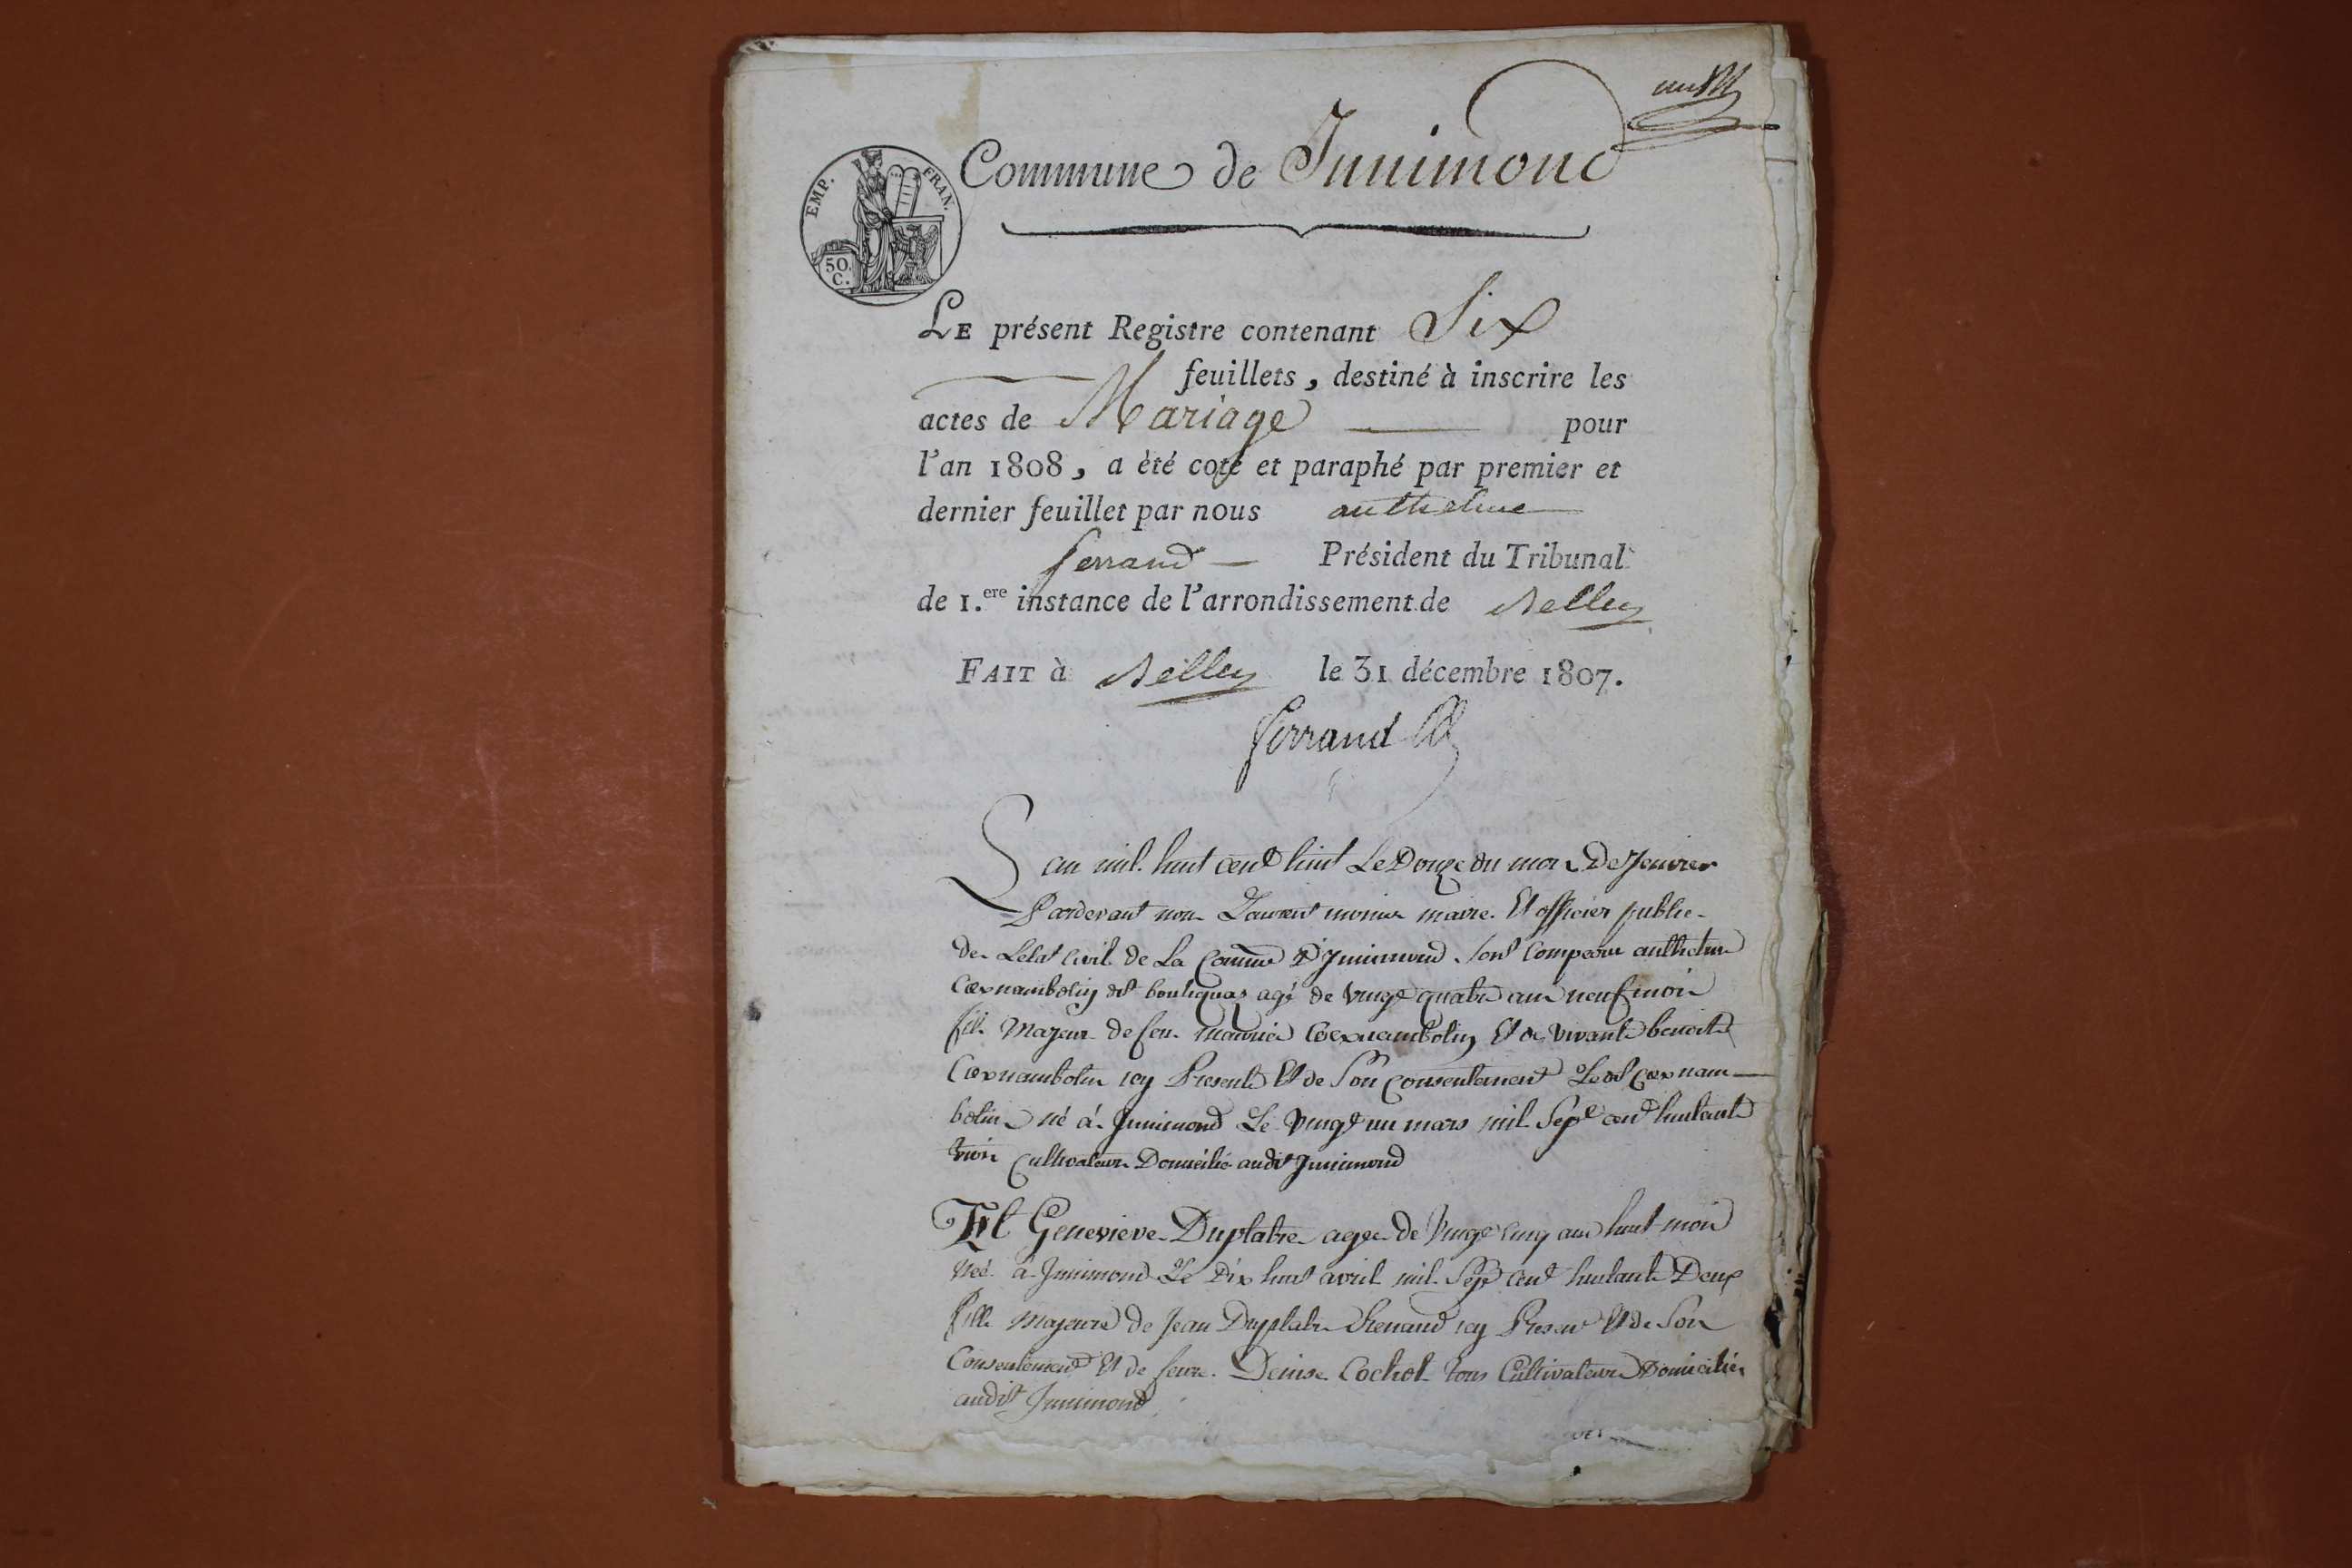 un
Commune de Innimond
EMP. FRAN.
50. C.
LE présent Registre contenant Six
feuillets, destiné à inscrire les
actes de Mariage pour
l'an 1808, a èté coté et paraphé par premier et
dernier feuillet par nous anthelme
ferrand Président du Tribunal
de 1.ere instance de l'arrondissement de Belley
FAIT à Belley le 31 décembre 1807.
ferrand
Lan mil huit cent huit Le Douze du mois De Janvier
Pardevant nous Laurent maire Et officier public
de Letat Civil de La Commune D'Innimond sont Comparu anthelme
dit boutiquas agé de Vingt quatre ans neuf mois
fils Majeur de feu maurice Et de vivante benoite
icy Presente Et de Son Consentement Ledit
né á Innimond Le Vingt un mars mil Sept cent huitante
trois Cultivateur Domicilié audit Innimond
Et Genevieve Duplatre agee de Vingt cinq ans huit mois
Née a Innimond Le Dix huit avril mil Sept Cent huitante Deux
fille Majeure de Jean Duplatre Renaud icy Present Et de Son
Consentement Et de feue Denise Cochet tous Cultivateurs Domiciliés
audit Innimond